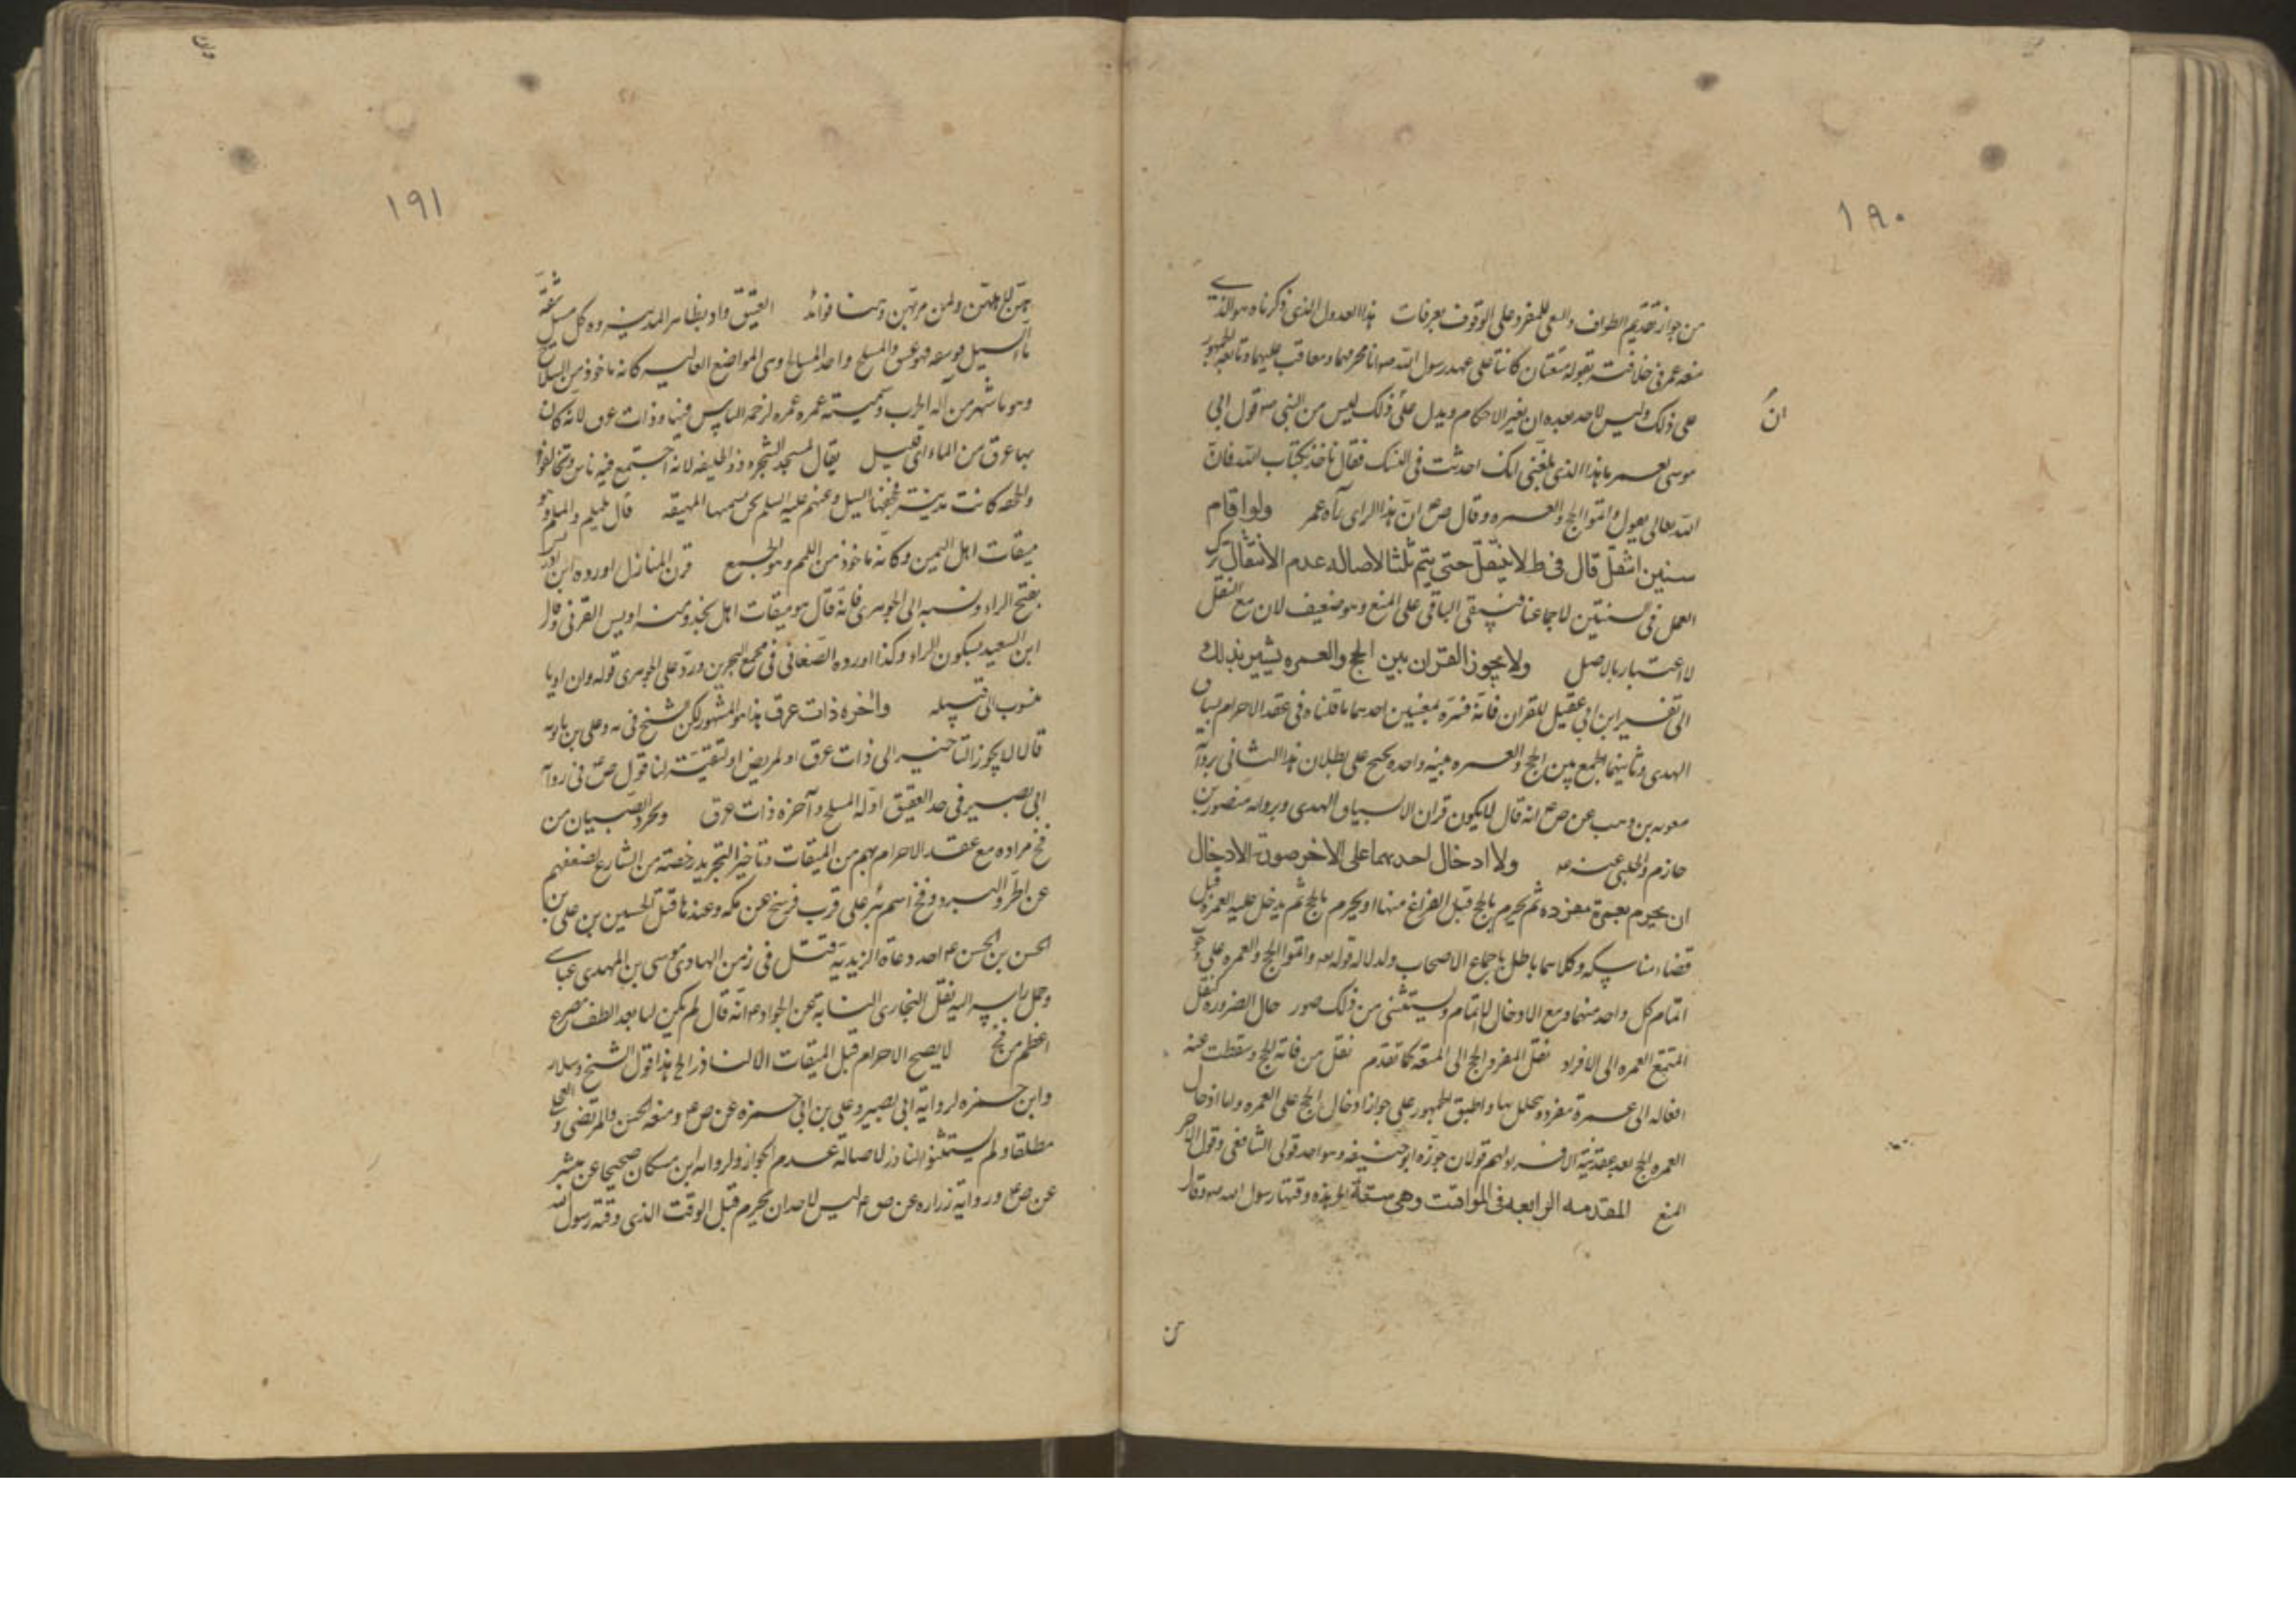 ١٩٠
من جواز تقديم الطواف والسعى للمفرد على الوقوف بعرفات هذا العدول الذى ذكرناه هو الذى
منعه عمر فى خلافته بقوله متعتان كانتا على عهد رسول الله ص انا محرمهما ومعاقب عليهما وتابعه الجمهور
على ذلك وليس لاحد بعده ان يغير الاحكام ويدل على ان ذلك ليس من النبى ص قول ابى
موسى لعمر ما هذا الذى بلغنى انك احدثت فى النسك فقال ناخذ بكتاب الله فان
الله تعالى يقول واتموا الحج والعمره وقال ص ع ان هذا الراى رآه عمر ولو اقام
سنتين انتقل قال فى ط لا ينتقل حتى يتم ثلثا لاصاله عدم الانتقال ترك
العمل فى السنتين لاجماعنا فيبقى الباقى على المنع وهو ضعيف لان مع النقل
لا اعتبار بالاصل ولا يجوز القران بين الحج والعمره يشير بذلك
الى تفسير ابن ابى عقيل للقران فانه فسره بمعنيين احدهما ما قلناه فى عقد الاحرام بسياق
الهدى وثانيهما الجمع بين الحج والعمره بنيه واحده يحتج على بطلان هذا الثانى بروايه
معويه بن وهب عن ص ع انه قال لا يكون قران الا بسياق الهدى وبروايه منصور بن
حازم والحلبى عنه ع ولا ادخال احدهما على الاخر صورة الادخال
ان يحرم بعمرة مفرده ثم يحرم بالحج قبل الفراغ منها او يحرم بالحج ثم يدخل عليه العمره قبل
قضاء مناسكه وكلاهما باطل باجماع الاصحاب ولدلاله قوله تعالى واتموا الحج والعمره على وجوب
اتمام كل واحد منهما ومع الادخال لا اتمام ويستثنى من ذلك صور حال الضروره كنقل
المتمتع العمره الى الافراد نقل المفرد الحج الى المتعه كما تقدم نقل من فاته الحج وسقطت عنه
افعاله الى عمرة مفرده يتحلل بها واطبق الجمهور على جواز ادخال الحج على العمره واما ادخال
العمره على الحج بعد عقد نية الافراد لهم قولان جوزه ابو حنيفه وهو احد قولى الشافعى وقوله الاخر
المنع المقدمه الرابعه فى المواقيت وهى ستة هذه وقتها رسول الله ص وقال
ان
١٩١
هن لاهلهن ولمن مر بهن وهنا فوائد العقيق واد بظاهر المدينه وكل مسيل شقه
ماء السيل فوسعه فهو عقيق والمسلح واحد المسالح وهى المواضع العاليه كانه ماخوذ من السلاح
وهو ما شهر من آله الحرب وتسميته غمره لزحمه الناس فيها وذات عرق لانه كان
بها عرق من الماء اى قليل يقال لمسجد الشجره ذو الحليفه لانه اجتمع فيه ناس وتحالفوا
والجحفه كانت مدينة فجحفها السيل وعنهم عليه السلم نحن نسميها المهيعه قال يلملم والملم وهو
ميقات اهل اليمن وكانه ماخوذ من اللمم وهو الجمع قرن المنازل اورده ابن ادريس
بفتح الراء ونسبه الى الجوهرى فانه قال هو ميقات اهل نجد ومنه اويس القرنى وقال
ابن السعيد بسكون الراء وكذا اورده الصغانى فى مجمع البحرين ورد على الجوهرى قوله وان اويسا
منسوب الى قبيله واخره ذات عرق هذا هو المشهور لكن الشيخ فى يه وعلى بن بابويه
قالا لا يجوز التاخير الى ذات عرق الا لمريض او لتقية لنا قول ص ع فى رواية
ابى بصير فى حد العقيق اوله المسلح وآخره ذات عرق وتجرد الصبيان من
فخ مراده مع عقد الاحرام بهم من الميقات وتاخير التجريد رخصة من الشارع لضعفهم
عن الحر والبرد وفخ اسم بئر على قرب فرسخ عن مكه وعندها قتل الحسين بن على بن
الحسن بن الحسن ع احد دعاة الزيدية قتل فى زمن الهادى موسى بن المهدى عباسى
وحمل راسه اليه نقل البخارى النسابه عن الجواد ع انه قال لم يكن لنا بعد الطف مصرع
اعظم من فخ لا يصح الاحرام قبل الميقات الا لناذر الخ هذا قول الشيخ وسلار
وابن حمزه لرواية ابى بصير وعلى بن ابى حمزه عن ص ع ومنعه الحسن والمرتضى والعجلى
مطلقا ولم يستثنوا الناذر لاصالة عدم الجواز ولروايه ابن مسكان صحيحا عن ميسر
عن ص ع ورواية زراره عن ص ع ليس لاحد ان يحرم قبل الوقت الذى وقته رسول الله